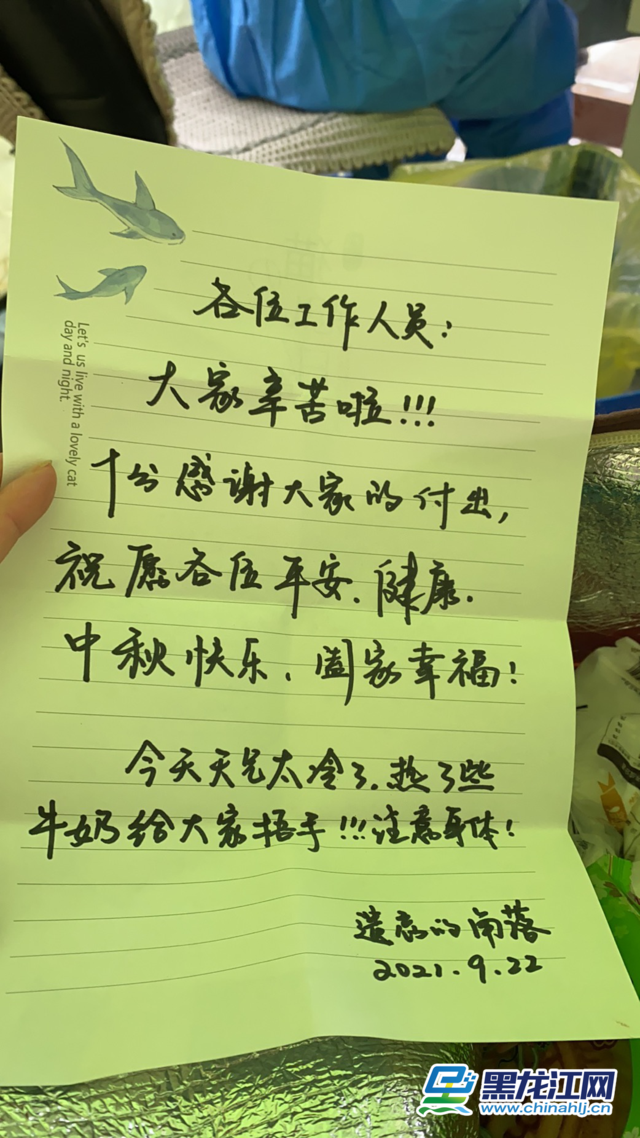 Let's us live with a lovely cat
day and night.
各位工作人员:
大家辛苦啦!!!
十分感谢大家的付出,
祝愿各位平安、健康、
中秋快乐、阖家幸福!
今天天气太冷了,热了些
牛奶给大家捂手!!!注意身体!
遗忘的角落
2021.9.22
黑龙江网
www.chinahlj.cn